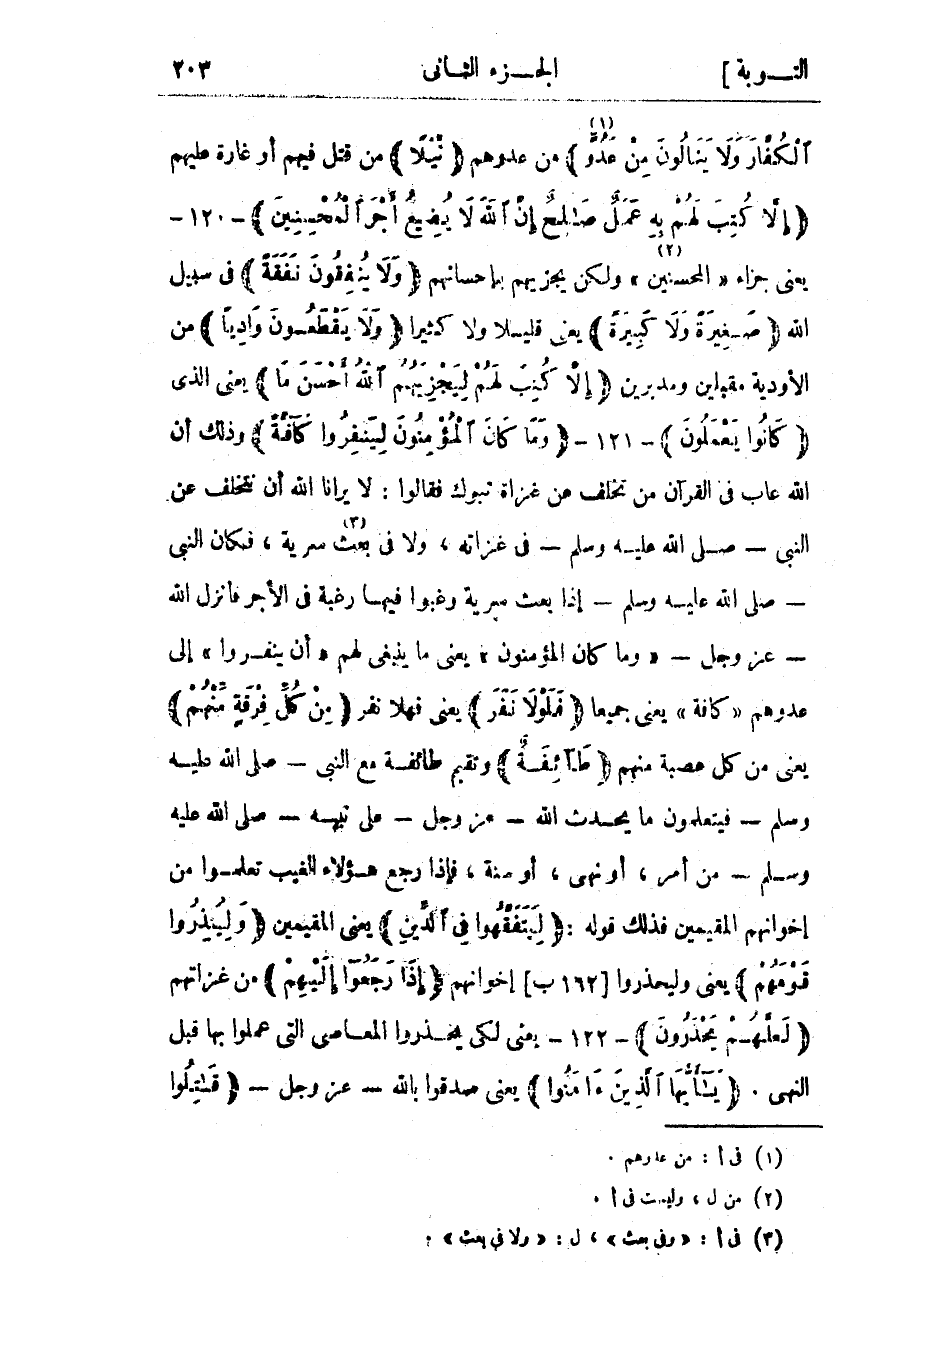 التوبة ] الجزء الثانى ٢٠٣
ٱلْكُفَّارَ وَلَا يَنَالُونَ مِنْ عَدُوٍّ ﴾ (١) من عدوهم ﴿ نَّيْلًا ﴾ من قتل فيهم أو غارة عليهم
﴿ إِلَّا كُتِبَ لَهُمْ بِهِ عَمَلٌ صَـٰلِحٌ إِنَّ ٱللَّهَ لَا يُضِيعُ أَجْرَ ٱلْمُحْسِنِينَ ﴾ - ١٢٠ -
يعنى جزاء « المحسنين » (٢) ولكن يجزيهم بإحسانهم ﴿ وَلَا يُنْفِقُونَ نَفَقَةً ﴾ فى سبيل
الله ﴿ صَغِيرَةً وَلَا كَبِيرَةً ﴾ يعنى قليلا ولا كثيرا ﴿ وَلَا يَقْطَعُونَ وَادِياً ﴾ من
الأودية مقبلين ومدبرين ﴿ إِلَّا كُتِبَ لَهُمْ لِيَجْزِيَهُمُ ٱللَّهُ أَحْسَنَ مَا ﴾ يعنى الذى
﴿ كَانُوا يَعْمَلُونَ ﴾ - ١٢١ - ﴿ وَمَا كَانَ ٱلْمُؤْمِنُونَ لِيَنفِرُوا كَآفَّةً ﴾ وذلك أن
الله عاب فى القرآن من تخلف عن غزاة تبوك فقالوا : لا يرانا الله أن نتخلف عن
النبى — صلى الله عليه وسلم — فى غزاته ، ولا فى بعث (٣) سرية ، فكان النبى
— صلى الله عليه وسلم — إذا بعث سرية رغبوا فيها رغبة فى الأجر فأنزل الله
— عز وجل — « وما كان المؤمنون » يعنى ما ينبغى لهم « أن ينفروا » إلى
عدوهم « كافة » يعنى جميعا ﴿ فَلَوْلَا نَفَرَ ﴾ يعنى فهلا نفر ﴿ مِنْ كُلِّ فِرْقَةٍ مِّنْهُمْ ﴾
يعنى من كل عصبة منهم ﴿ طَآئِفَةٌ ﴾ وتقيم طائفة مع النبى — صلى الله عليه
وسلم — فيتعلمون ما يحدث الله — عز وجل — على نبيه — صلى الله عليه
وسلم — من أمر ، أو نهى ، أو سنة ، فإذا رجع هؤلاء الغيب تعلموا من
إخوانهم المقيمين فذلك قوله : ﴿ لِيَتَفَقَّهُوا فِى ٱلدِّينِ ﴾ يعنى المقيمين ﴿ وَلِيُنذِرُوا
قَوْمَهُمْ ﴾ يعنى وليحذروا [ ١٦٢ ب ] إخوانهم ﴿ إِذَا رَجَعُوٓا إِلَيْهِمْ ﴾ من غزاتهم
﴿ لَعَلَّهُمْ يَحْذَرُونَ ﴾ - ١٢٢ - يعنى لكى يحذروا المعاصى التى عملوا بها قبل
النهى . ﴿ يَـٰٓأَيُّهَا ٱلَّذِينَ ءَامَنُوا ﴾ يعنى صدقوا بالله — عز وجل — ﴿ قَـٰتِلُوا
(١) فى أ : من عدوهم .
(٢) من ل ، وليست فى أ .
(٣) فى أ : « وفى بعث » ، ل : « ولا فى بعث » .